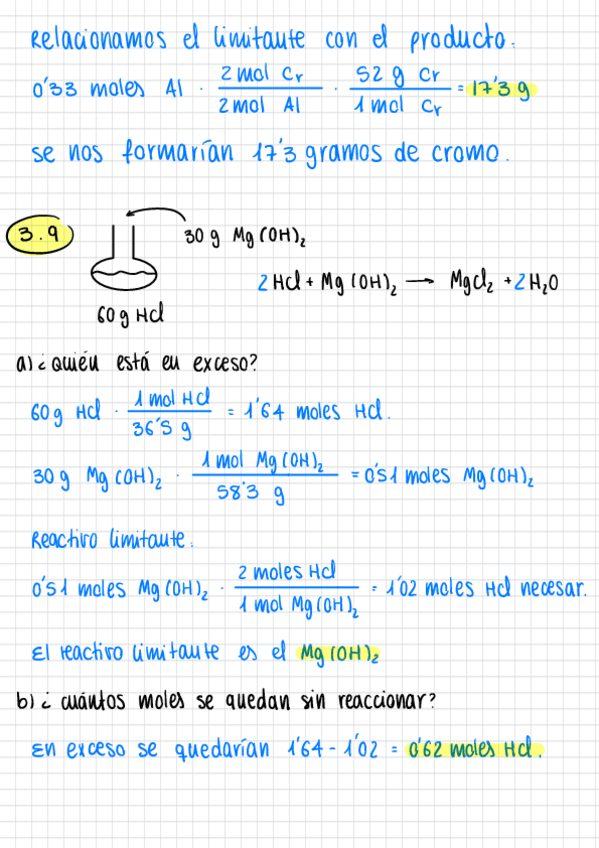 Relacionamos el limitante con el producto:
0'33 moles Al · 2 mol Cr / 2 mol Al · 52 g Cr / 1 mol Cr = 17'3 g
se nos formarían 17'3 gramos de cromo.
3.9
30 g Mg(OH)₂
2HCl + Mg(OH)₂ → MgCl₂ + 2H₂O
60 g HCl
a) ¿Quién está en exceso?
60 g HCl · 1 mol HCl / 36'5 g = 1'64 moles HCl.
30 g Mg(OH)₂ · 1 mol Mg(OH)₂ / 58'3 g = 0'51 moles Mg(OH)₂
Reactivo limitante:
0'51 moles Mg(OH)₂ · 2 moles HCl / 1 mol Mg(OH)₂ = 1'02 moles HCl necesar.
El reactivo limitante es el Mg(OH)₂
b) ¿cuántos moles se quedan sin reaccionar?
En exceso se quedarían 1'64 - 1'02 = 0'62 moles HCl.